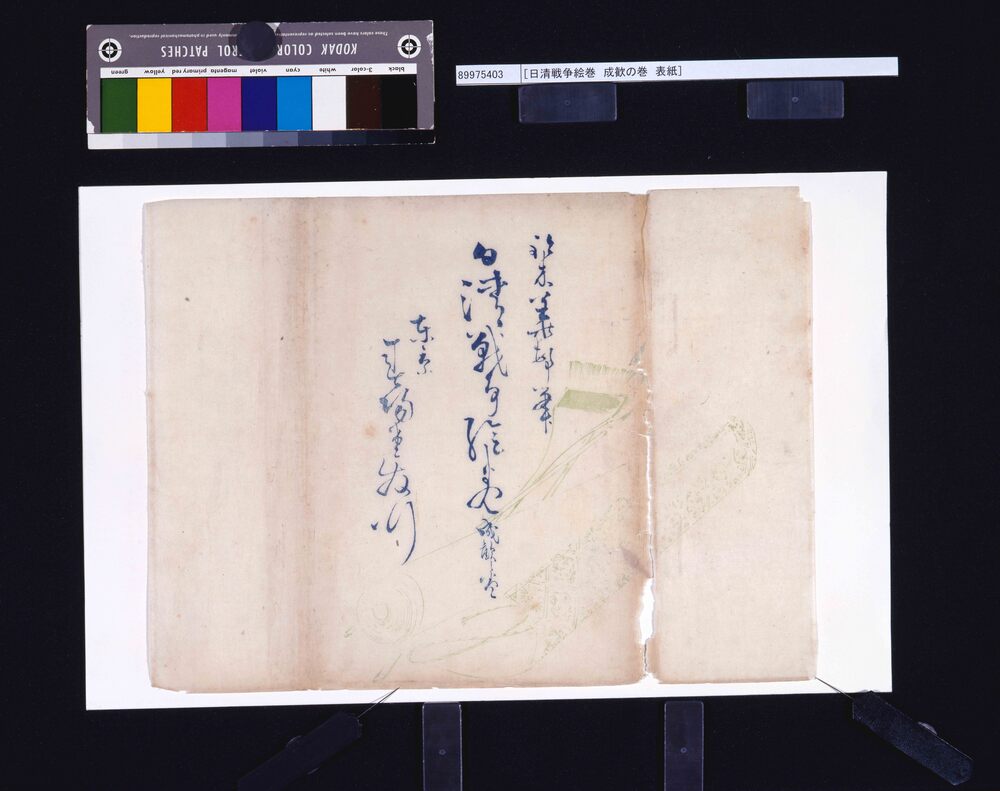 KODAK COLOR CONTROL PATCHES
These colors have been selected as representative
commonly used in photomechanical reproduction
green yellow primary red magenta violet cyan white 3-color black
89975403 [日清戦争絵巻 成歓の巻 表紙]
華邨筆
日清戦争絵巻 成歓巻
東京 春陽堂発行